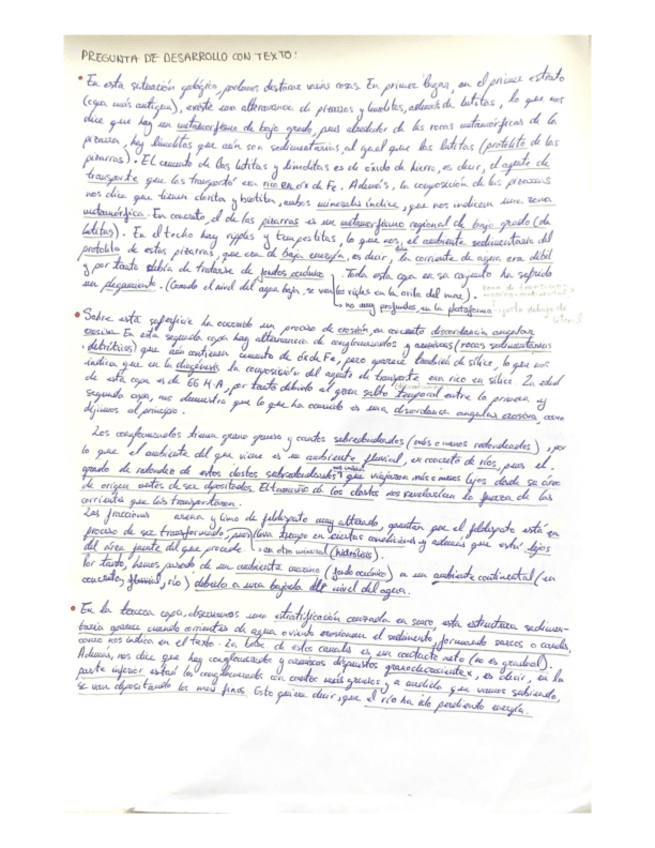 PREGUNTA DE DESARROLLO CON TEXTO:
• En esta situación geológica, podemos destacar varias cosas. En primer lugar, en el primer estrato
(capa más antigua), existe una alternancia de pizarras y limolitas, además de lutitas, lo que nos
dice que hay un metamorfismo de bajo grado, pues alrededor de las rocas metamórficas de la
pizarra, hay limolitas que aún son sedimentarias, al igual que las lutitas (protolito de las
pizarras). El cemento de las lutitas y limolitas es de óxido de hierro, es decir, el agente de
transporte que las transportó era rico en óx de Fe. Además, la composición de las pizarras
nos dice que tienen clorita y biotita, ambos minerales índice, que nos indican una zona
metamórfica. En concreto, el de las pizarras es un metamorfismo regional de bajo grado (de
lutitas). En el techo hay ripples y tempestitas, lo que nos el ambiente sedimentario del
protolito de estas pizarras, que era de baja energía, es decir, la corriente de agua era débil
y por tanto debía de tratarse de fondos oceánico. Toda esta capa en su conjunto ha sufrido
un plegamiento. (Cuando el nivel del agua baja, se ven los ripples en la orilla del mar).
no muy profundos, en la plataforma
• Sobre esta superficie ha ocurrido un proceso de erosión, en concreto discordancia angular
erosiva. En esta segunda capa hay alternancia de conglomerados y areniscas (rocas sedimentarias
detríticas) que aún contienen cemento de óx de Fe, pero aparece también de sílice, lo que nos
indica que en la diagénesis la composición del agente de transporte era rico en sílice. La edad
de esta capa es de 66 M.A, por tanto debido al gran salto temporal entre la primera y
segunda capa, nos demuestra que lo que ha ocurrido es una discordancia angular erosiva, como
dijimos al principio.
Los conglomerados tienen grano grueso y cantos subredondeados (más o menos redondeados), por
lo que el ambiente del que viene es un ambiente fluvial, en concreto de ríos, pues el
grado de redondeo de estos clastos subredondeados que viajaron más o menos lejos desde su área
de origen antes de ser depositados. El tamaño de los clastos nos revelarían la fuerza de las
corriente que las transportaron.
Las fracciones arena y limo de feldespato muy alterado, apuntan por el feldespato está en
proceso de ser transformado, pues lleva tiempo en ciertas condiciones y además que está lejos
del área fuente del que procede. en otro mineral (hidrólisis).
Por tanto, hemos pasado de un ambiente marino (fondo oceánico) a un ambiente continental (en
concreto, fluvial, río) debido a una bajada del nivel del agua.
• En la tercera capa, observamos una estratificación cruzada en surco, esta estructura sedimen-
taria aparece cuando corrientes de agua o viento erosionan el sedimento, formando surcos o canales,
como nos indica en el texto. La base de estos canales es un contacto neto (no es gradual).
Además, nos dice que hay conglomerado y areniscas dispuestos granodecreciente, es decir, en la
parte inferior están los conglomerados con cantos más gruesos y a medida que vamos subiendo,
se van depositando los más finos. Esto quiere decir, que el río ha ido perdiendo energía.